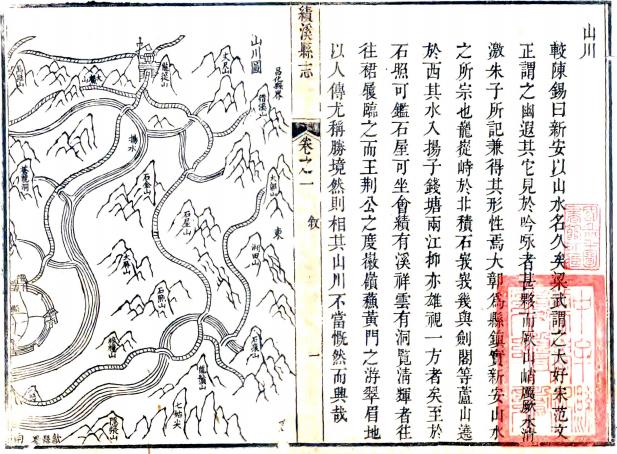 山川
較陳錫曰新安以山水名久矣梁武謂之大好宋范文
正謂之幽遐其它見於吟咏者甚夥而厥山峭厲厥水清
激朱子所記兼得其形性焉大鄣為縣鎮實新安山水
之所宗也龍從峙於北積石峩峩幾與劍閣等蘆山遶
於西其水入揚子錢塘兩江抑亦雄視一方者矣至於
石照可鑑石屋可坐會績有溪祥雲有洞覽清輝者往
往裙屐臨之而王荊公之度徽嶺蘇黃門之游翠眉地
以人傳尤稱勝境然則相其山川不當慨然而興哉
績溪縣志
卷之一
敘
一
山川圖
昌化縣界
大鄣山
東
揚水
石金山
石屋山
石照山
石溪山
龍鬚山
七姑尖
南